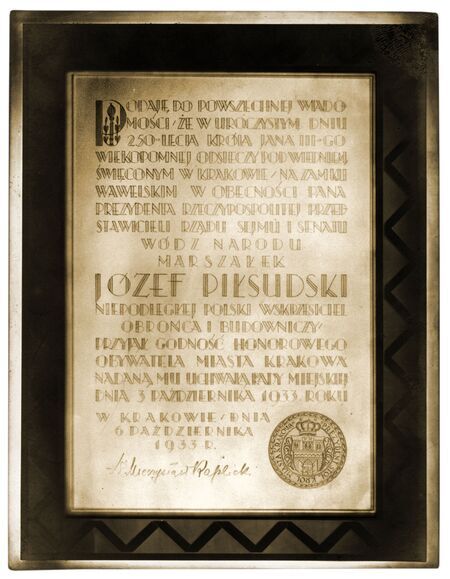 PODAJĘ DO POWSZECHNEJ WIADO-
MOŚCI, ŻE W UROCZYSTYM DNIU
250-LECIA KRÓLA JANA III-GO
WIEKOPOMNEJ ODSIECZY POD WIEDNIEM,
ŚWIĘCONYM W KRAKOWIE, NA ZAMKU
WAWELSKIM W OBECNOŚCI PANA
PREZYDENTA RZECZYPOSPOLITEJ PRZED-
STAWICIELI RZĄDU SEJMU I SENATU
WÓDZ NARODU
MARSZAŁEK
JÓZEF PIŁSUDSKI
NIEPODLEGŁEJ POLSKI WSKRZESICIEL
OBROŃCA I BUDOWNICZY,
PRZYJĄŁ GODNOŚĆ HONOROWEGO
OBYWATELA MIASTA KRAKOWA
NADANĄ MU UCHWAŁĄ RADY MIEJSKIEJ
DNIA 3 PAŹDZIERNIKA 1933 ROKU
W KRAKOWIE, DNIA
6 PAŹDZIERNIKA
1933 R.
Mieczysław Kaplicki